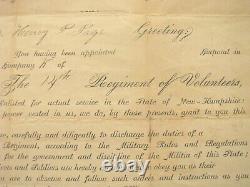 Henry P. Page Greeting;
You having been appointed Corporal in
Company K of
The 14th Regiment of Volunteers,
Enlisted for actual service in the State of New-Hampshire;
power vested in us, we do, by these presents, grant to you this
carefully and diligently to discharge the duties of a
Regiment, according to the Military Rules and Regulations
for the government and discipline of the Militia of this State
Officers and Soldiers
are to observe and follow such orders and instructions as you